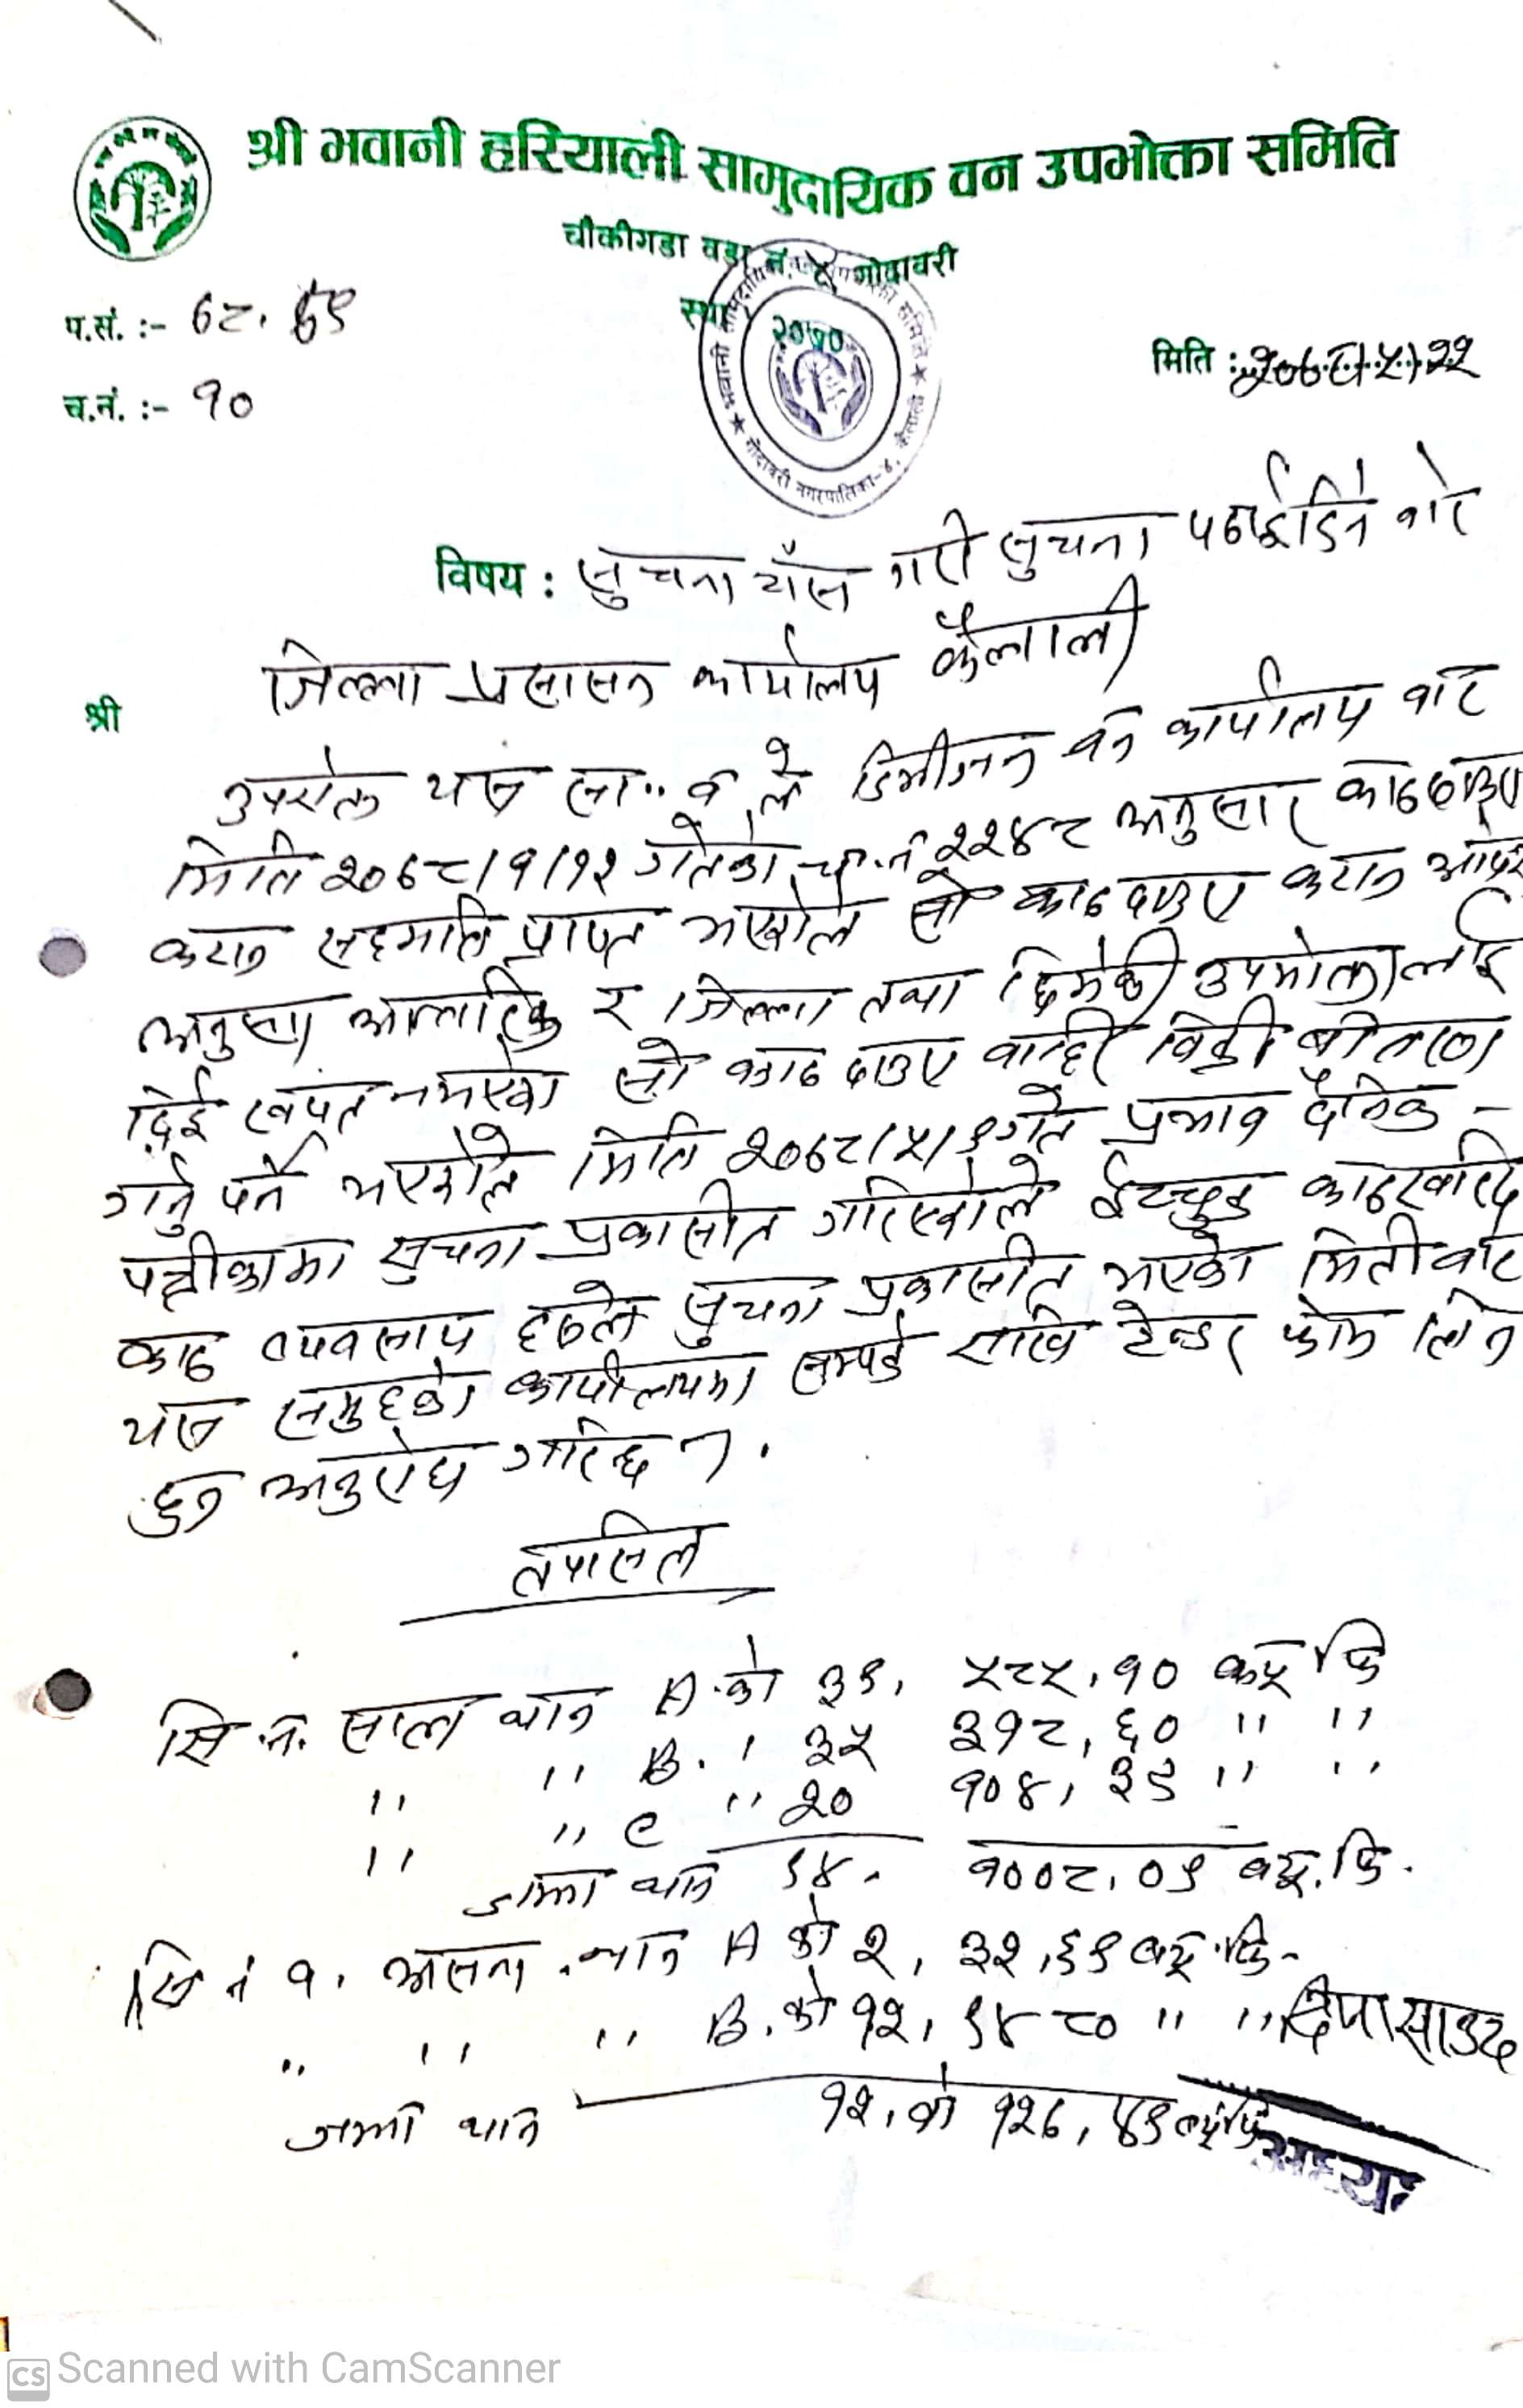 श्री भवानी हरियाली सामुदायिक वन उपभोक्ता समिति
चौकीगडा वडा नं. ४ गोदावरी
स्था २०७०
प.सं. :- ७८.
च.नं. :- १०
मिति :
विषय : सुचना टाँस गरी सुचना पठाईदिने बारे
श्री जिल्ला प्रसासन कार्यालय कैलाली
उपरोक्त यस सा.. व ले डिभीजन वन कार्यालय बाट
मिति २०७८/१/१२ गतेको च.नं २२४८ अनुसार काठदाउरा
कटान सहमति प्राप्त भएकोले सो काठ दाउरा कटान आदेश
अनुसार आन्तरिक र जिल्ला तथा छिमेकी उपभोक्तालाई
दिई खपत नभएको सो काठ दाउरा बाहिर विक्री बीतरण
गर्नु पर्ने भएकोले मिति २०७८/५/९ गते प्रभाव दैनिक -
पत्रीकामा सुचना प्रकासीत गरिएकोले ईच्छुक काठखरिद
काठ व्यवसाय हरुले सुचना प्रकासीत भएको मितीबाट
यस समुहको कार्यालयमा सम्पर्क राखि टेन्डर फोम लिन
हुन अनुरोध गरिन्छ ।
तपसिल
सि.नं. साल थान A.को ३९, ५८५.१० क्यू फि
" " B. " ३५ ३१८,६० " "
" " C " २० १०४,३९ " "
जम्मा थान ९४. १००८.०९ क्यू. फि.
सि नं १. आसना थान A को २, ३२,६९ क्यू.फि.
" " " B. को १२, ९४८० " "
दिपा साउद
जम्मा थान १२.को १२७,४९ क्यू फि
अध्यक्ष
श्री भवानी सामुदायिक वन उपभोक्ता समिति
गोदावरी नगरपालिका-४, कैलाली
CS Scanned with CamScanner